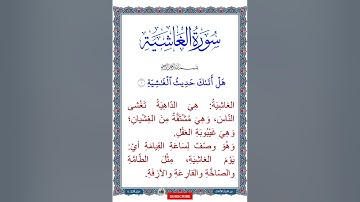 سُورَةُ الْغَاشِيَةِ
هَلْ أَتَىٰكَ حَدِيثُ ٱلْغَٰشِيَةِ ١
الغَاشِيَةُ: هِيَ الدَّاهِيَةُ تَغْشَى
النَّاسَ، وَهِيَ مُشْتَقَّةٌ مِنَ الغِشْيَانِ؛
وَهِيَ غَيْبُوبَةُ العَقْلِ.
وَهُوَ وَصْفٌ لِسَاعَةِ القِيَامَةِ أَيْ:
يَوْمَ الغَاشِيَةِ، مِثْلَ الطَّامَّةِ
وَالصَّاخَّةِ وَالقَارِعَةِ وَالآزِفَةِ.
SUBSCRIBE